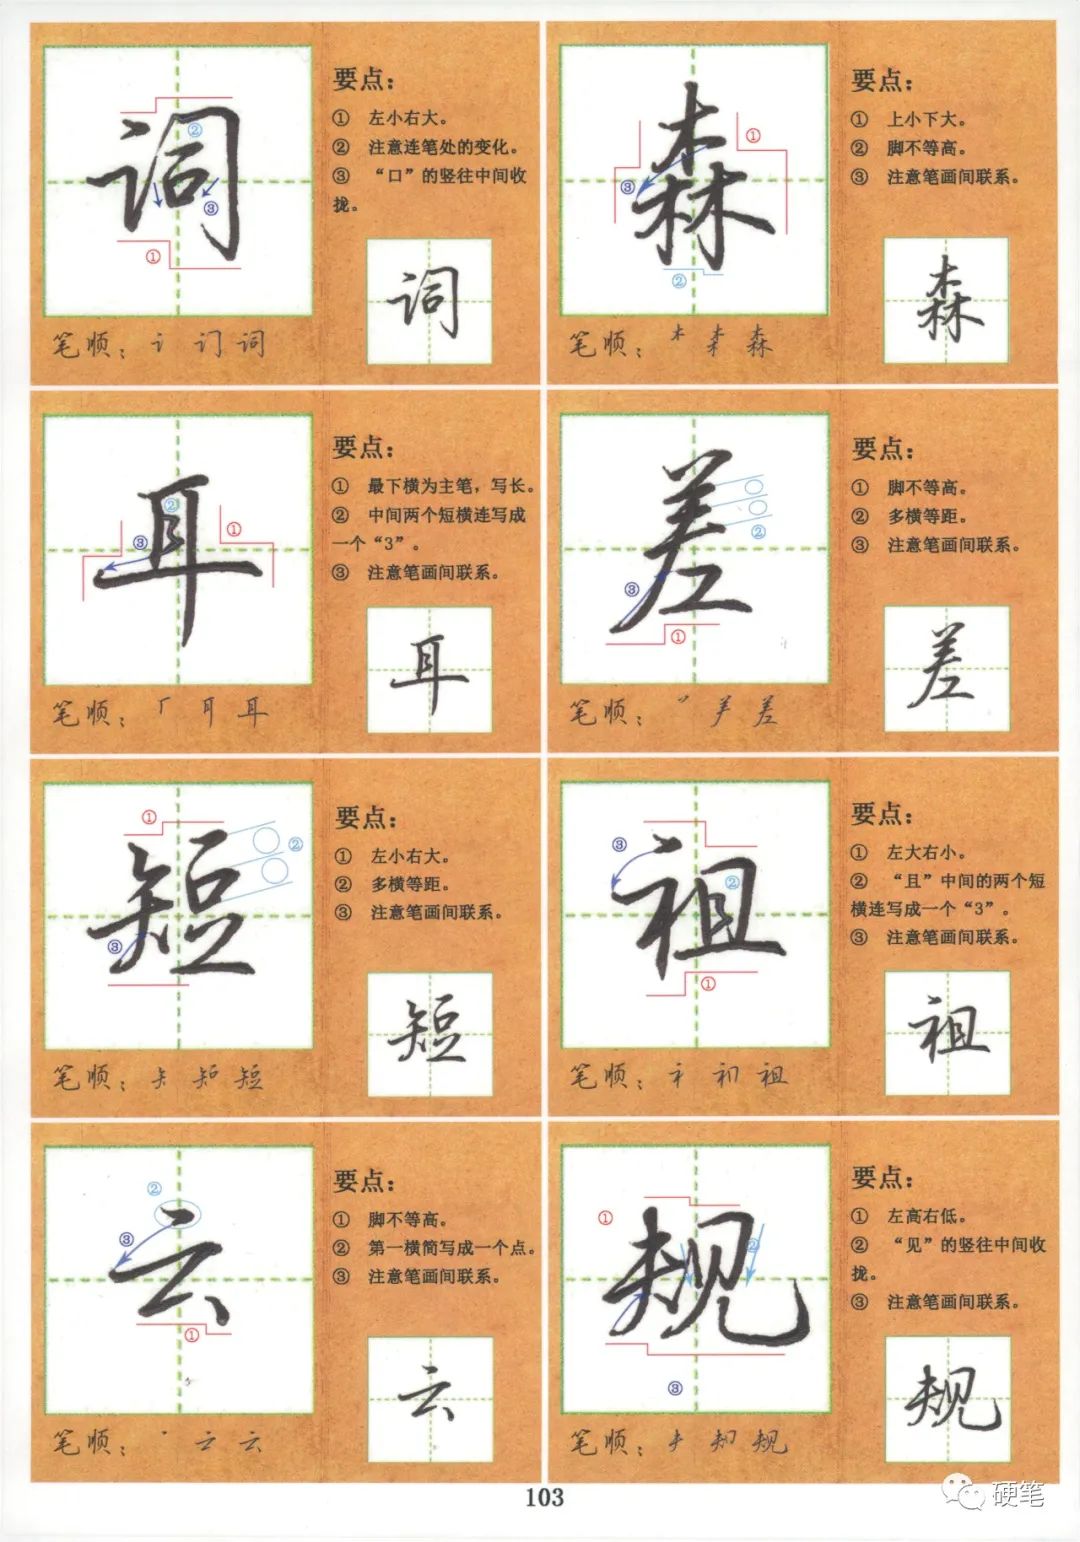 词
要点：
① 左小右大。
② 注意连笔处的变化。
③ “口”的竖往中间收
拢。
词
笔顺：讠 订 词
①
②
③
①
森
要点：
① 上小下大。
② 脚不等高。
③ 注意笔画间联系。
森
笔顺：木 森
①
③
②
耳
要点：
① 最下横为主笔，写长。
② 中间两个短横连写成
一个“3”。
③ 注意笔画间联系。
耳
笔顺：耳
②
①
③
差
要点：
① 脚不等高。
② 多横等距。
③ 注意笔画间联系。
差
笔顺：差
②
③
①
短
要点：
① 左小右大。
② 多横等距。
③ 注意笔画间联系。
短
笔顺：知 短
①
②
③
祖
要点：
① 左大右小。
② “且”中间的两个短
横连写成一个“3”。
③ 注意笔画间联系。
祖
笔顺：礻 祖
③
②
①
云
要点：
① 脚不等高。
② 第一横简写成一个点。
③ 注意笔画间联系。
云
笔顺：云
②
③
①
规
要点：
① 左高右低。
② “见”的竖往中间收
拢。
③ 注意笔画间联系。
规
笔顺：规
①
②
③
103
硬笔